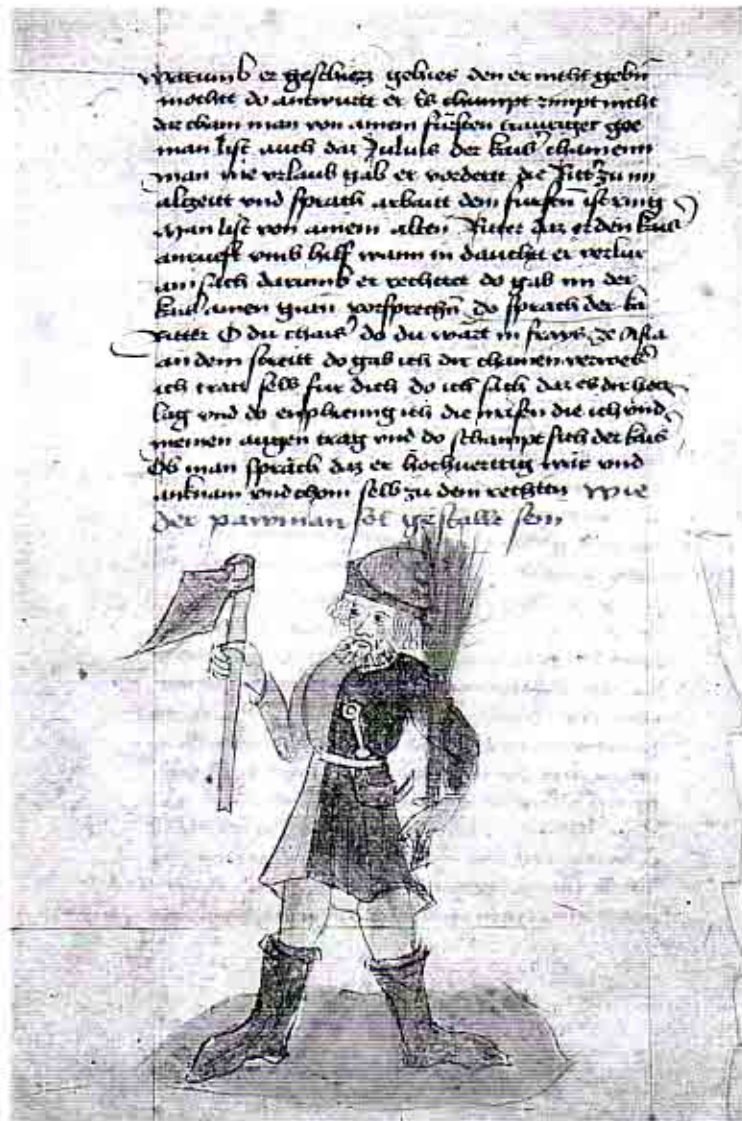 warumb er geschierz gehies den er nicht gebn̄
mochtt do antwurtt er Es chumpt zimpt nicht
die cham man von ainem fürsten trauriger gee
man list auch daz Julius der kais' chainem
man nie vrlaub gab er vordertt die Ritt' zu im
alzeitt vnd sprach arbaitt dem fürsten̄ ist ring
Man list von ainem alten Ritter daz er den kais'
anrueft vmb hilf wann in dauchtt er verlur
ain sach darumb er rechtet do gab im der
kais' ainen guten̄ vorsprechn̄ do sprach der
ritter O du chais' do du wart in frays ze Asia
an dem streitt do gab ich dir chainen
ich tratt selb für dich do ich sach daz es dir
lag vnd do enphieng ich die masen die ich vnd'
meinen augen trag vnd do schampt sich der kais'
Es man sprach daz er hochverttig wär vnd
vnd chom selb zu dem rechten wie
der pawman sol gestallt sein